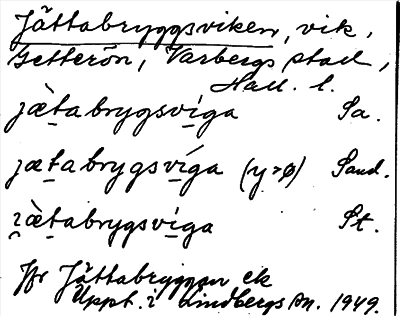 Jättabryggsviken, vik,
Getterön, Varbergs stad,
Hall. l.
jæ̀ṯabrygsvi̱ga Sa.
jæṯabrygsví̱ga (y>ø) Sand.
ı̯æ̀ṯabrygsvi̱ga St.
Jfr Jättabryggan ek
Uppt. i Lindbergs An. 1949.